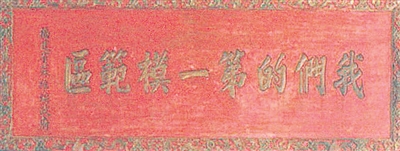 我們的第一模範區